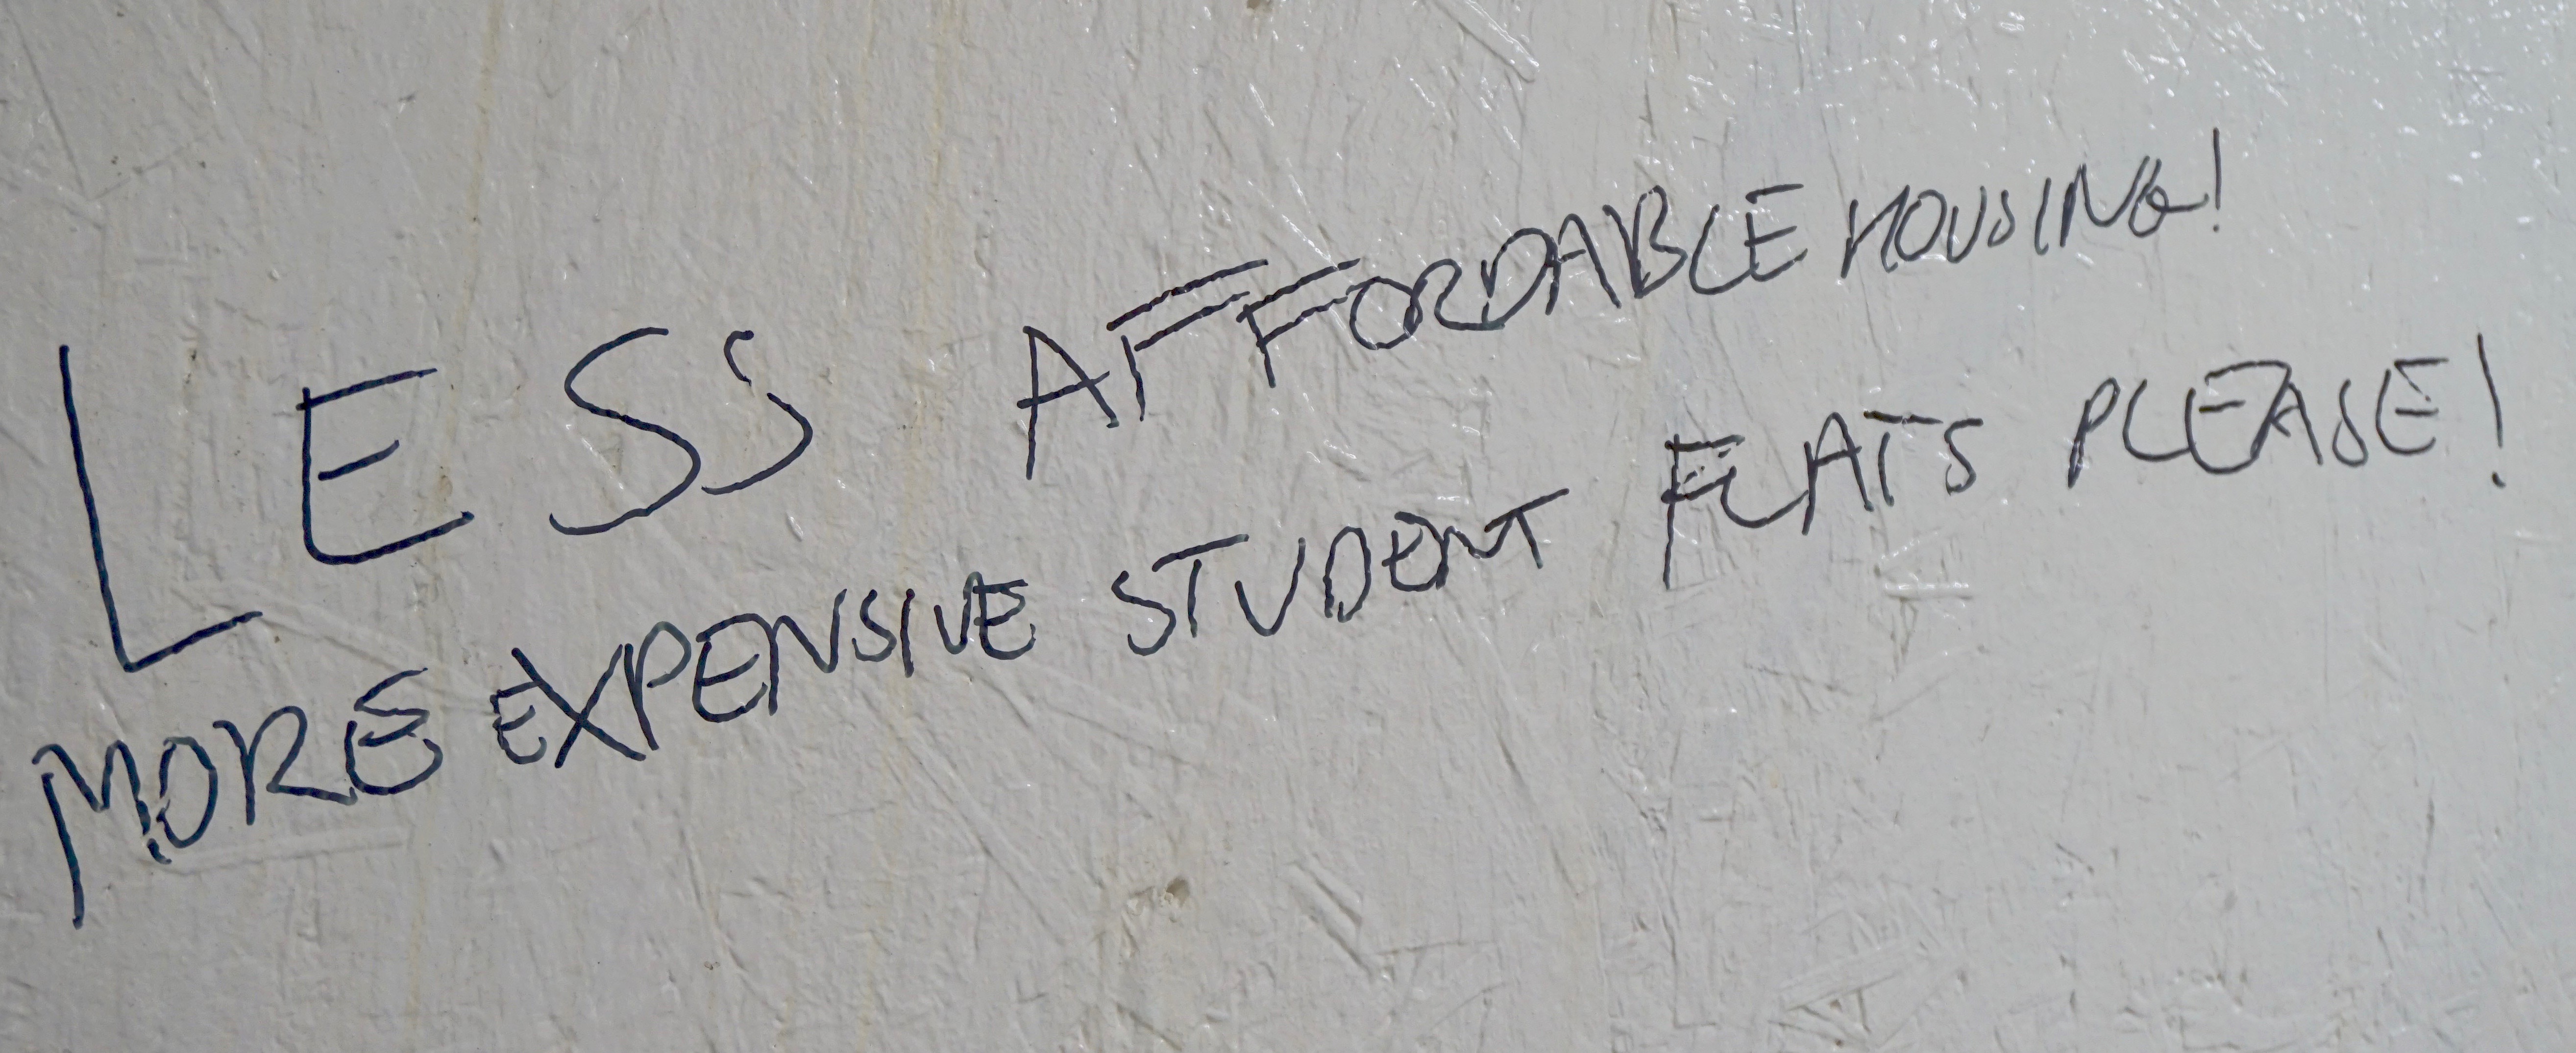 LESS AFFORDABLE HOUSING!
MORE EXPENSIVE STUDENT FLATS PLEASE!